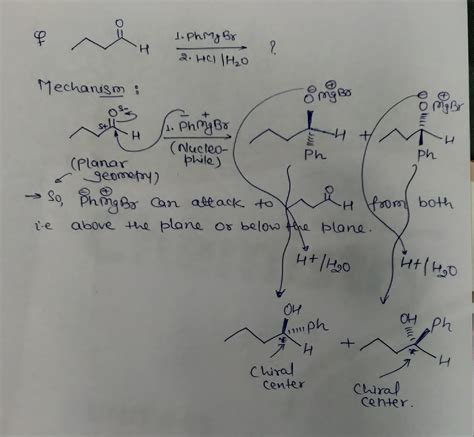 Q
O
H
1. PhMgBr
2. HCl/H2O
?
Mechanism :
Oδ-
δ+
H
1. PhMgBr
(Nucleo-
phile)
⊖ ⊕
O MgBr
H
Ph
+
⊖ ⊕
O MgBr
H
Ph
(Planar
geometry)
→ So, PhMgBr can attack to
O
H
from both
i.e above the plane or below the plane.
H+/H2O
H+/H2O
OH
Ph
*
H
+
OH
Ph
*
H
Chiral
center
Chiral
center.